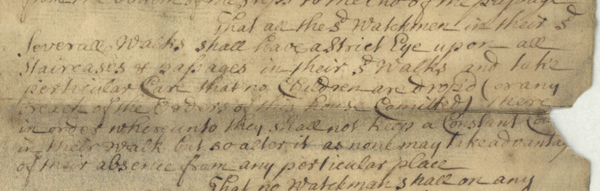 from the bottom of the steps to the End of the passage
That all the sd Watchmen in their sd
Severall Walks shall have a strict Eye upon all
Staircases & passages in their sd Walks and take
perticular Care that no Children are dropd (or any
breach of the Orders of this house Comitted) there
in order whereunto they shall not keep a Constant
in their Walk but so alter it as none may take advantag
of their absence from any perticular place
That no Watchman shall on any